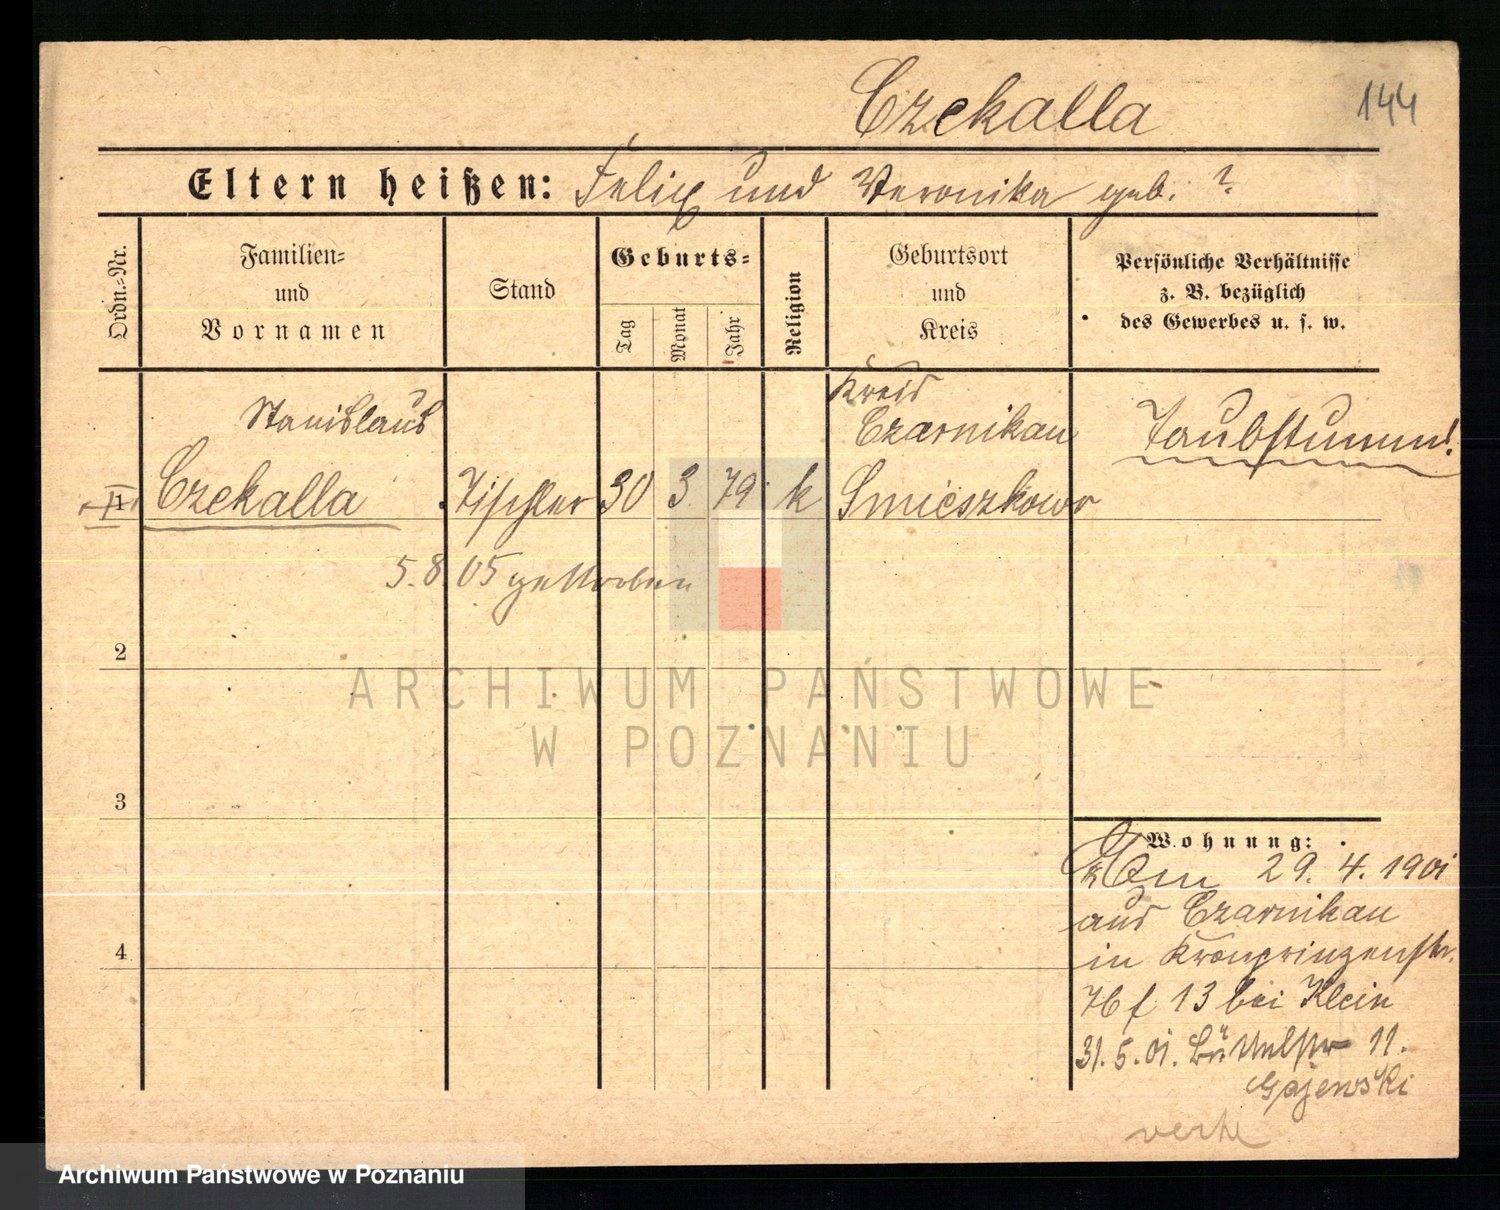 Czekalla
144
Eltern heißen: Felix und Veronika geb. ?
Ordn.-Nr.
Familien-
und
Vornamen
Stand
Geburts-
Tag
Monat
Jahr
Religion
Geburtsort
und
Kreis
Persönliche Verhältnisse
z. B. bezüglich
des Gewerbes u. s. w.
Stanislaus
Kreis
Czarnikau
Taubstumm!
1 Czekalla Tischler 30 3 79 k Smieszkowo
5.8.05 gestorben
2
3
4
Wohnung:
Am 29.4.1901
aus Czarnikau
in Kronprinzenstr.
76 f 13 bei Klein
31.5.01. Büttelstr 11.
Gajewski
verh
ARCHIWUM PAŃSTWOWE
W POZNANIU
Archiwum Państwowe w Poznaniu